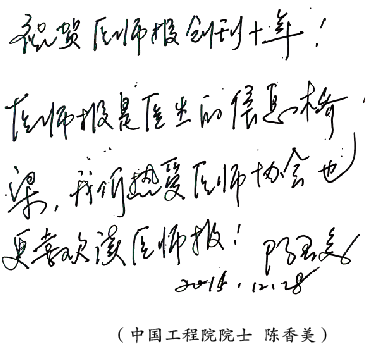 祝贺医师报创刊十年！
医师报是医生的信息桥
梁，我们热爱医师协会也
更喜欢读医师报！ 陈香美
12.28
（中国工程院院士 陈香美）